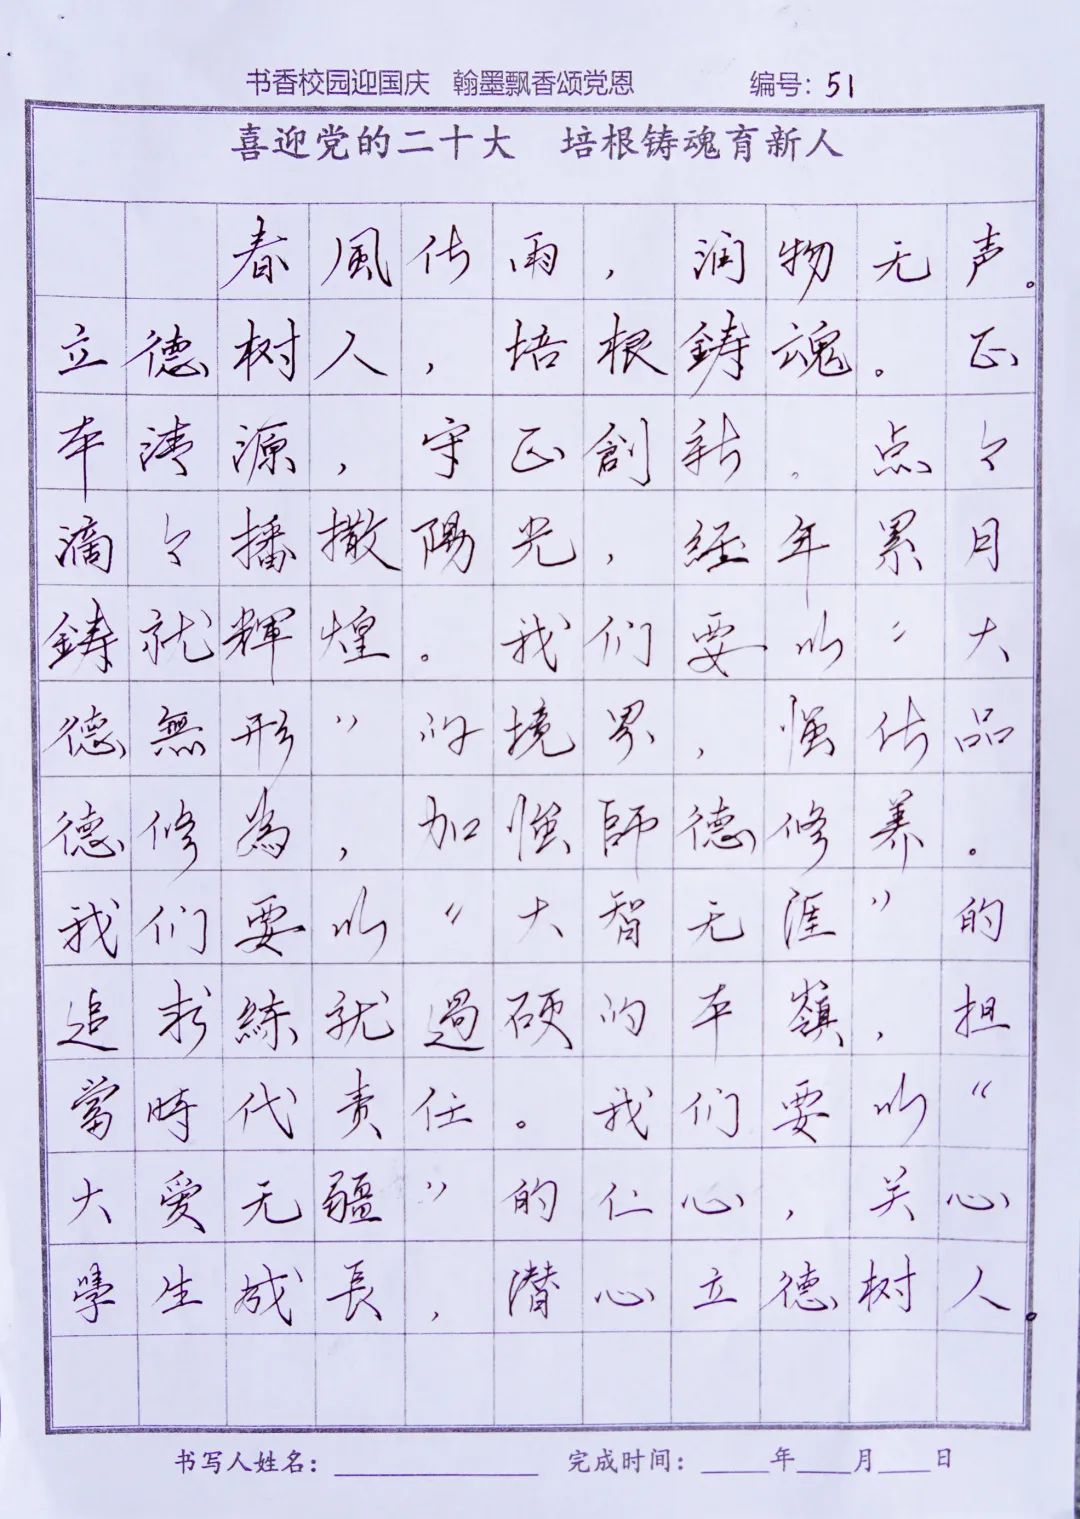 书香校园迎国庆 翰墨飘香颂党恩 编号：51
喜迎党的二十大 培根铸魂育新人
春風化雨，润物无声。
立德树人，培根鑄魂。正
本清源，守正創新。点々
滴々播撒陽光，经年累月
鑄就輝煌。我们要以“大
德無形”的境界，强化品
德修為，加强師德修养。
我们要以“大智无涯”的
追求練就過硬的本領，担
當時代责任。我们要以“
大爱无疆”的仁心，关心
學生成長，潜心立德树人。
书写人姓名：________ 完成时间：____年___月___日